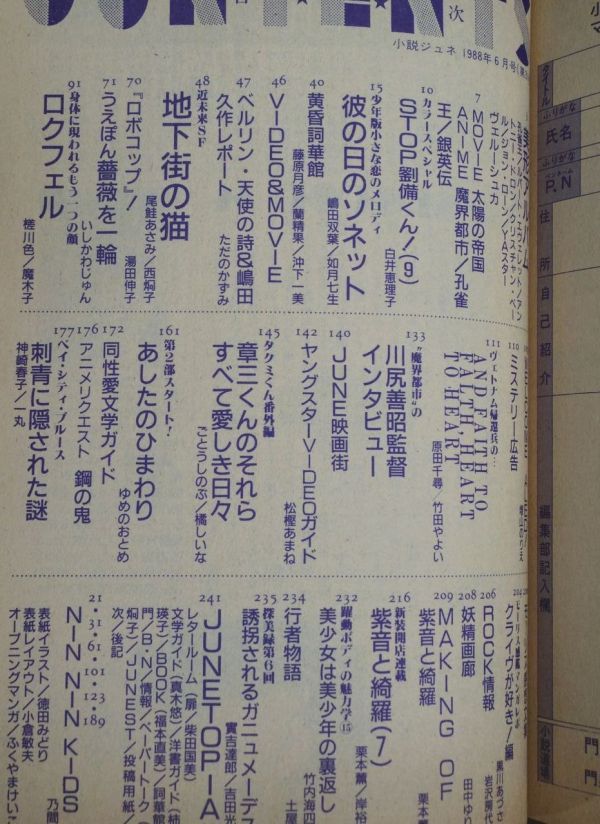 CONTENTS
次
小説ジュネ 1988年6月号
7
MOVIE 太陽の帝国
ANIME 魔界都市/孔雀
王/銀英伝
10 カラースペシャル
STOP劉備くん!(9)
白井恵理子
15 少年版小さな恋のメロディ
彼の日のソネット
嶋田双葉/如月七生
40
黄昏詞華館
藤原月彦/蘭精果/沖下一美
46
VIDEO&MOVIE
47
ベルリン・天使の詩&嶋田
久作レポート
ただのかずみ
48 近未来SF
地下街の猫
尾鮭あさみ/西炯子
70
『ロボコップ』!
湯田伸子
71
うえぽん薔薇を一輪
いしかわじゅん
91 身体に現われるもう一つの顔
ロクフェル
槎川色/魔木子
110
ミステリー広告
111
ヴェトナム帰還兵の…
AND FAITH TO
FALTH, HEART
TO HEART
原田千尋/竹田やよい
133
"魔界都市"の
川尻善昭監督
インタビュー
140
JUNE映画街
142
ヤングスターVIDEOガイド
松樫あまね
145
タクミくん番外編
章三くんのそれら
すべて愛しき日々
ごとうしのぶ/橘しいな
161
第2部スタート!
あしたのひまわり
ゆめのおとめ
172
同性愛文学ガイド
176
アニメリクエスト 鋼の鬼
177
ベイ・シティ・ブルース
刺青に隠された謎
神崎春子/一丸
クライヴが好き!編
206
ROCK情報
黒川あづさ
岩沢房代
208
妖精画廊
田中ゆり
209
MAKING OF
紫音と綺羅
栗本
216
新装開店連載
紫音と綺羅(7)
栗本薫/岸裕
232
躍動ボディの魅力学⑮
美少女は美少年の裏返し
竹内海四
234
行者物語
土屋
235
探美録第6回
誘拐されるガニュメーデス
實吉達郎/吉田光
241
JUNETOPIA
レタールーム(扉/柴田国美)
文学ガイド(真木悠)/洋書ガイド(柿
瑛子)/BOOK(福本直美)/詞華館
門/B・N/情報/ペーパートーク(
炯子)/JUNEST/投稿用紙/
次/後記
21・31・61・101・123・189
NIN NIN KIDS
乃間
表紙イラスト/徳田みどり
表紙レイアウト/小倉敏夫
オープニングマンガ/ふくやまけいこ
タイトル
ふりがな
氏名
ふりがな
ペンネーム
P.N
住所
自己紹介
編集部記入欄
小説道場
門
門